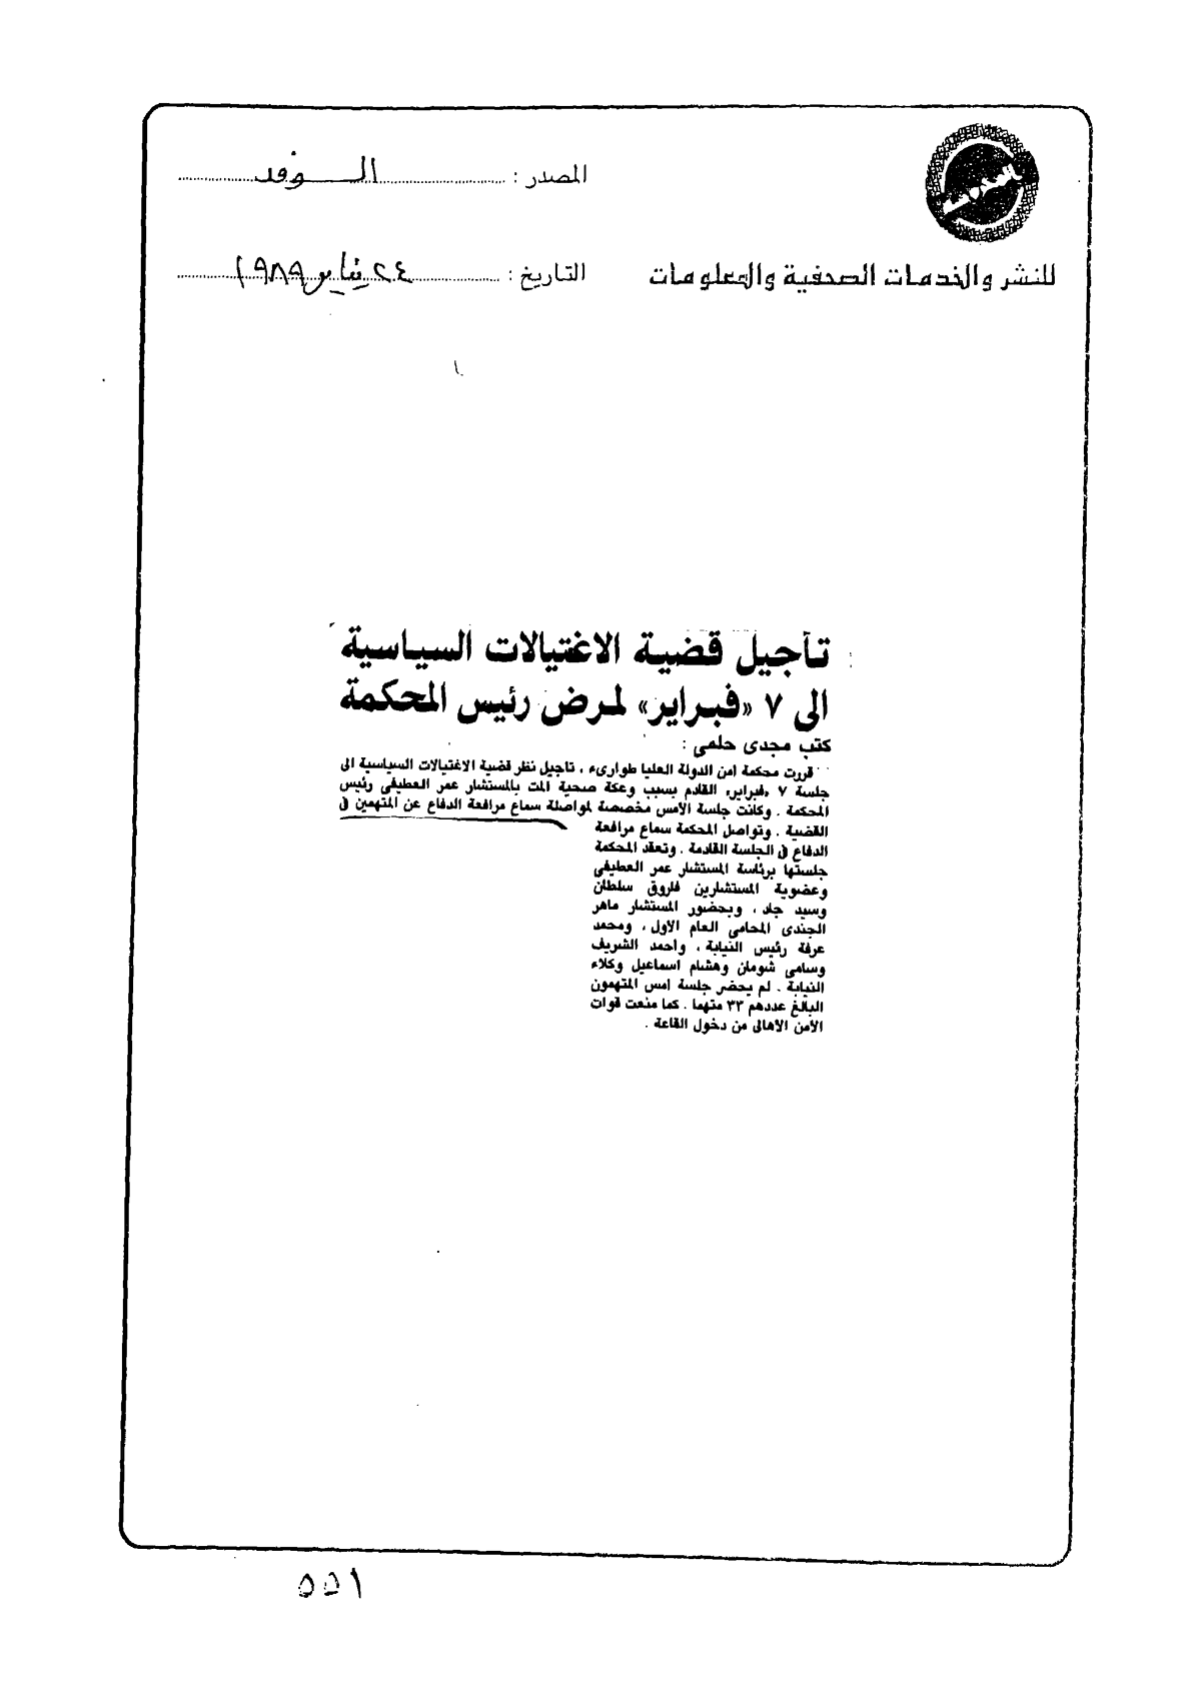 المصدر : الوفد
للنشر والخدمات الصحفية والمعلومات
التاريخ : ٢٤ يناير ١٩٨٩
تأجيل قضية الاغتيالات السياسية
الى ٧ «فبراير» لمرض رئيس المحكمة
كتب مجدى حلمى :
قررت محكمة امن الدولة العليا طوارىء ، تاجيل نظر قضية الاغتيالات السياسية الى
جلسة ٧ «فبراير» القادم بسبب وعكة صحية المت بالمستشار عمر العطيفى رئيس
المحكمة . وكانت جلسة الأمس مخصصة لمواصلة سماع مرافعة الدفاع عن المتهمين فى
القضية . وتواصل المحكمة سماع مرافعة
الدفاع فى الجلسة القادمة . وتعقد المحكمة
جلستها برئاسة المستشار عمر العطيفى
وعضوية المستشارين فاروق سلطان
وسيد جاد ، وبحضور المستشار ماهر
الجندى المحامى العام الاول ، ومحمد
عرفة رئيس النيابة ، واحمد الشريف
وسامى شومان وهشام اسماعيل وكلاء
النيابة . لم يحضر جلسة امس المتهمون
البالغ عددهم ٣٣ متهما . كما منعت قوات
الأمن الاهالى من دخول القاعة .
٥٥١